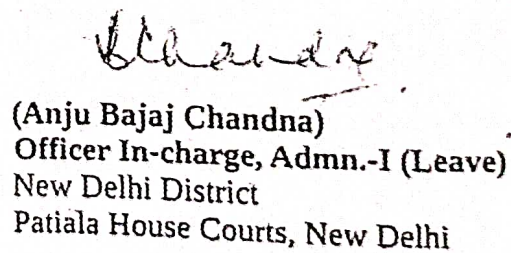 (Anju Bajaj Chandna)
Officer In-charge, Admn.-I (Leave)
New Delhi District
Patiala House Courts, New Delhi